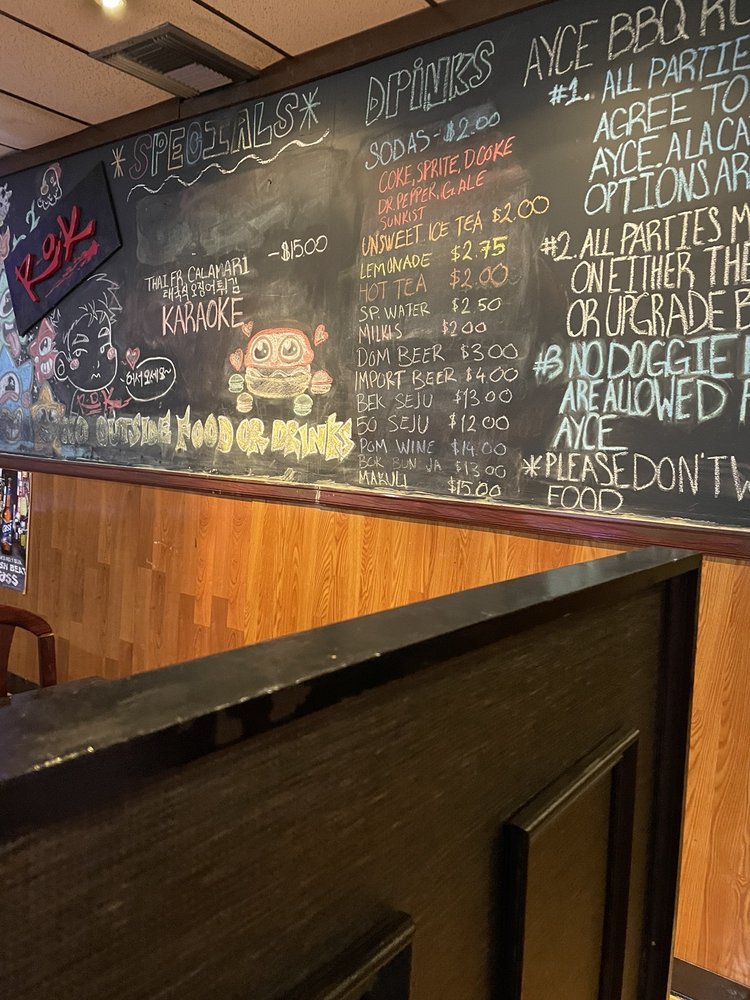 ROK
*SPECIALS*
—$15.00
THAI FR CALAMARI
태국식 오징어튀김
KARAOKE
어서오세요~
ROK
NO OUTSIDE FOOD OR DRINKS
DRINKS
SODAS - $2.00
COKE, SPRITE, D.COKE
DR.PEPPER, G.ALE
SUNKIST
UNSWEET ICE TEA $2.00
LEMONADE $2.75
HOT TEA $2.00
SP. WATER $2.50
MILKIS $2.00
DOM BEER $3.00
IMPORT BEER $4.00
BEK SEJU $13.00
50 SEJU $12.00
POM WINE $14.00
BOK BUN JA $13.00
MAKULI $15.00
AYCE BBQ RU
#1. ALL PARTIE
AGREE TO
AYCE. A LA CA
OPTIONS AR
#2. ALL PARTIES M
ON EITHER THE
OR UPGRADE B
#3 NO DOGGIE
ARE ALLOWED
AYCE
*PLEASE DON'T W
FOOD